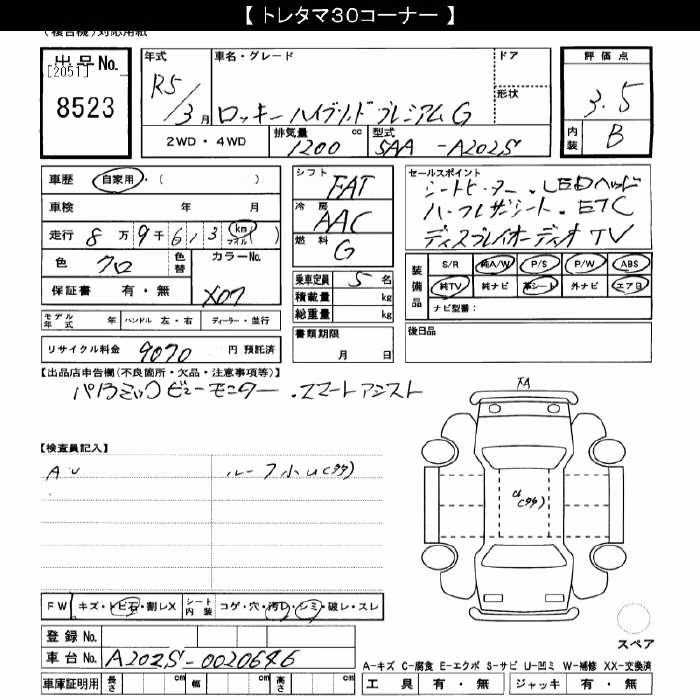 【 トレタマ30コーナー 】
(複合機)対応用紙
出品No.
[2051]
8523
年式 R5/3月
車名・グレード ロッキー ハイブリッド プレミアム G
ドア
形状
2WD・4WD 排気量 1200 cc 型式 5AA-A202S
評価点 3.5
内装 B
車歴 自家用・( )
車検 年 月
走行 8万9千613 (km マイル)
色 クロ 色替 カラーNo.
保証書 有・無 X07
モデル年式 年 ハンドル 左・右 ディーラー・並行
リサイクル料金 9070 円 預託済
シフト FAT
冷房 AAC
燃料 G
乗車定員 5 名
積載量 kg
総重量 kg
書類期限
月 日
セールスポイント
シートヒーター・LEDヘッド
ハーフレザーシート・ETC
ディスプレイオーディオ TV
装備品
S/R 純A/W P/S P/W ABS
純TV 純ナビ 革シート 外ナビ エアB
ナビ型番:
後日品
【出品店申告欄(不良箇所・欠品・注意事項等)】
パノラミックビューモニター・スマートアシスト
【検査員記入】
AU
ルーフ小U(タタ)
FA
U(タタ)
スペア
FW キズ・トビ石・割レX シート内装 コゲ・穴・汚レ・シミ・破レ・スレ
登録No.
車台No. A202S-0020646
車庫証明用 長さ cm 幅 cm 高さ cm
A-キズ C-腐食 E-エクボ S-サビ U-凹ミ W-補修 XX-交換済
工具 有・無 ジャッキ 有・無